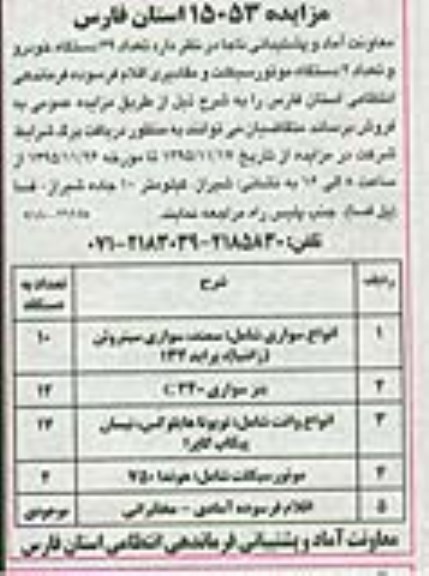 مزایده ۱۵۰۵۳ استان فارس
معاونت آماد و پشتیبانی ناجا در نظر دارد تعداد ۳۹ دستگاه خودرو
و تعداد ۴ دستگاه موتورسیکلت و مقادیری اقلام فرسوده فرماندهی
انتظامی استان فارس را به شرح ذیل از طریق مزایده عمومی به
فروش برساند. متقاضیان می توانند به منظور دریافت برگ شرایط
شرکت در مزایده از تاریخ ۱۳۹۵/۱۱/۱۷ تا مورخه ۱۳۹۵/۱۱/۲۶ از
ساعت ۸ الی ۱۴ به نشانی: شیراز، کیلومتر ۱۰ جاده شیراز- فسا
(پل فسا)، جنب پلیس راه مراجعه نمایند.
تلفن: ۲۱۸۵۸۳۰-۲۱۸۳۰۳۹-۰۷۱
ردیف شرح تعداد به دستگاه
۱ انواع سواری شامل: سمند، سواری سیتروئن (زانتیا)، پراید ۱۳۲ ۱۰
۲ بنز سواری ۱۲
۳ انواع وانت شامل: تویوتا هایلوکس، نیسان پیکاپ کاپرا
۴ موتورسیکلت شامل: هوندا ۷۵۰ ۴
۵ اقلام فرسوده آمادی - مخابراتی موجودی
معاونت آماد و پشتیبانی فرماندهی انتظامی استان فارس